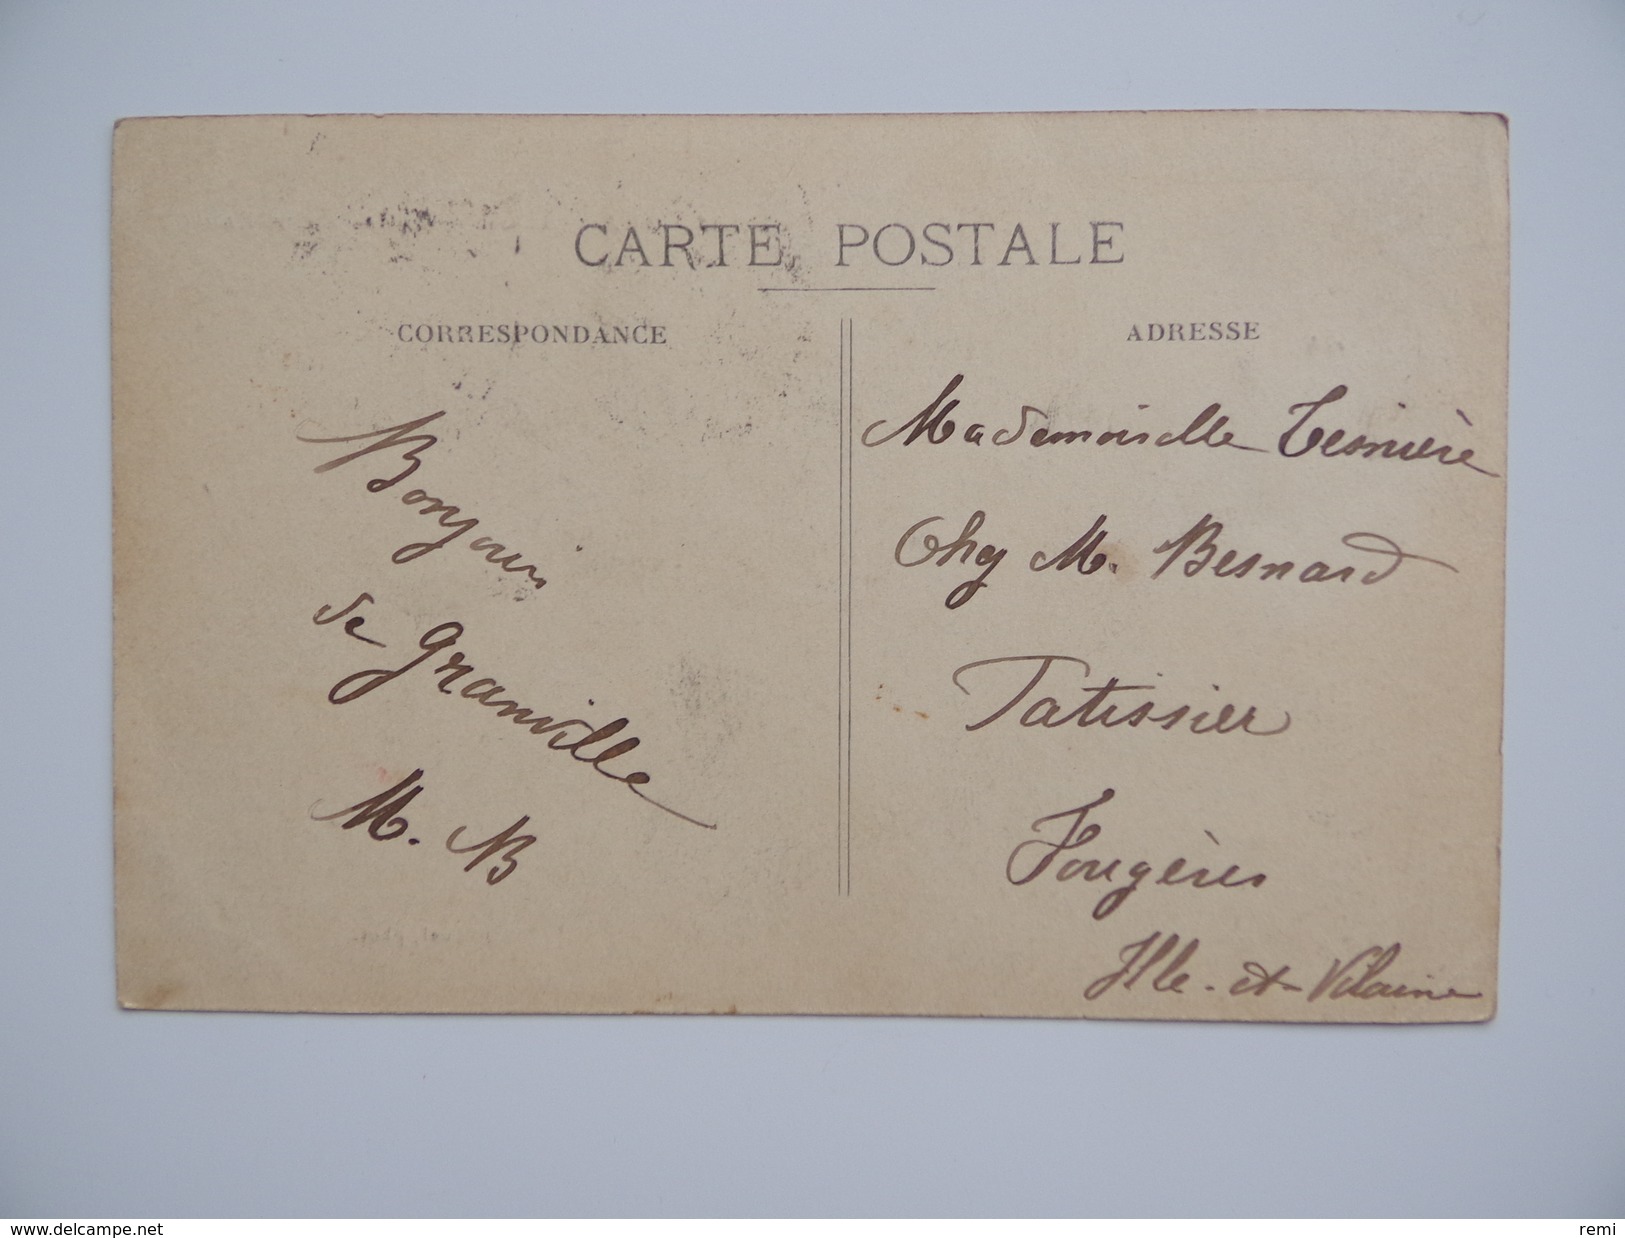 CARTE POSTALE
CORRESPONDANCE
Bonjour
de Granville
M. B
ADRESSE
Mademoiselle Tesnière
Chez M. Besnard
Patissier
Fougères
Ille-et-Vilaine
www.delcampe.net
remi